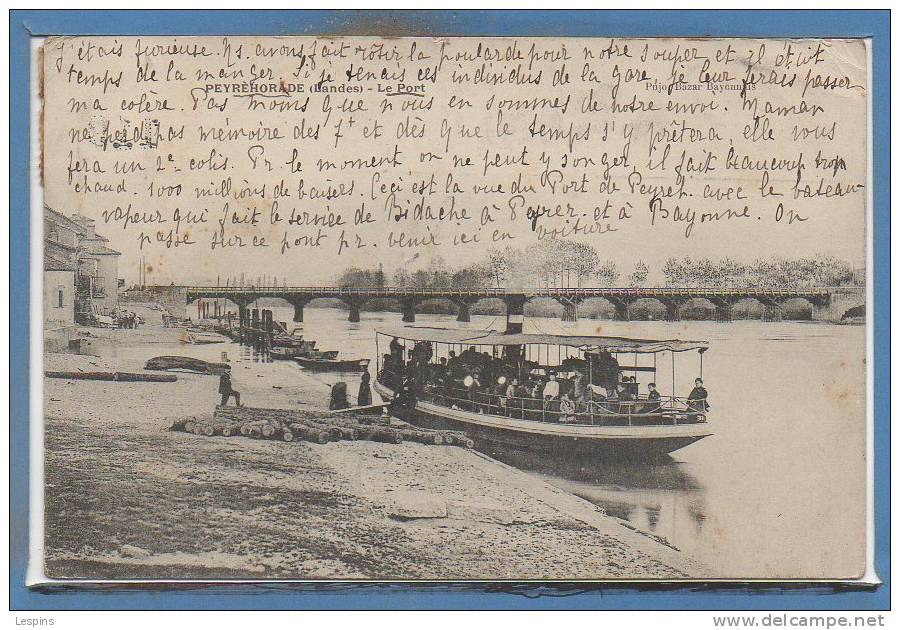 J'étais furieuse. Ns. avons fait rôtir la poularde pour notre souper et il était
temps de la manger. Si je tenais ces individus de la gare, je leur ferais passer
PEYREHORADE (Landes) - Le Port
Pujo, Bazar Bayonnais
ma colère. Pas moins que nous en sommes de notre envoi. Maman
ne perd pas mémoire des 7t et dès que le temps s'y prêtera, elle vous
fera un 2e colis. Pr. le moment on ne peut y songer, il fait beaucoup trop
chaud. 1000 millions de baisers. Ceci est la vue du Port de Peyreh. avec le bateau
vapeur qui fait le service de Bidache à Peyreh. et à Bayonne. On
passe sur ce pont pr. venir ici en voiture
Lespins
www.delcampe.net